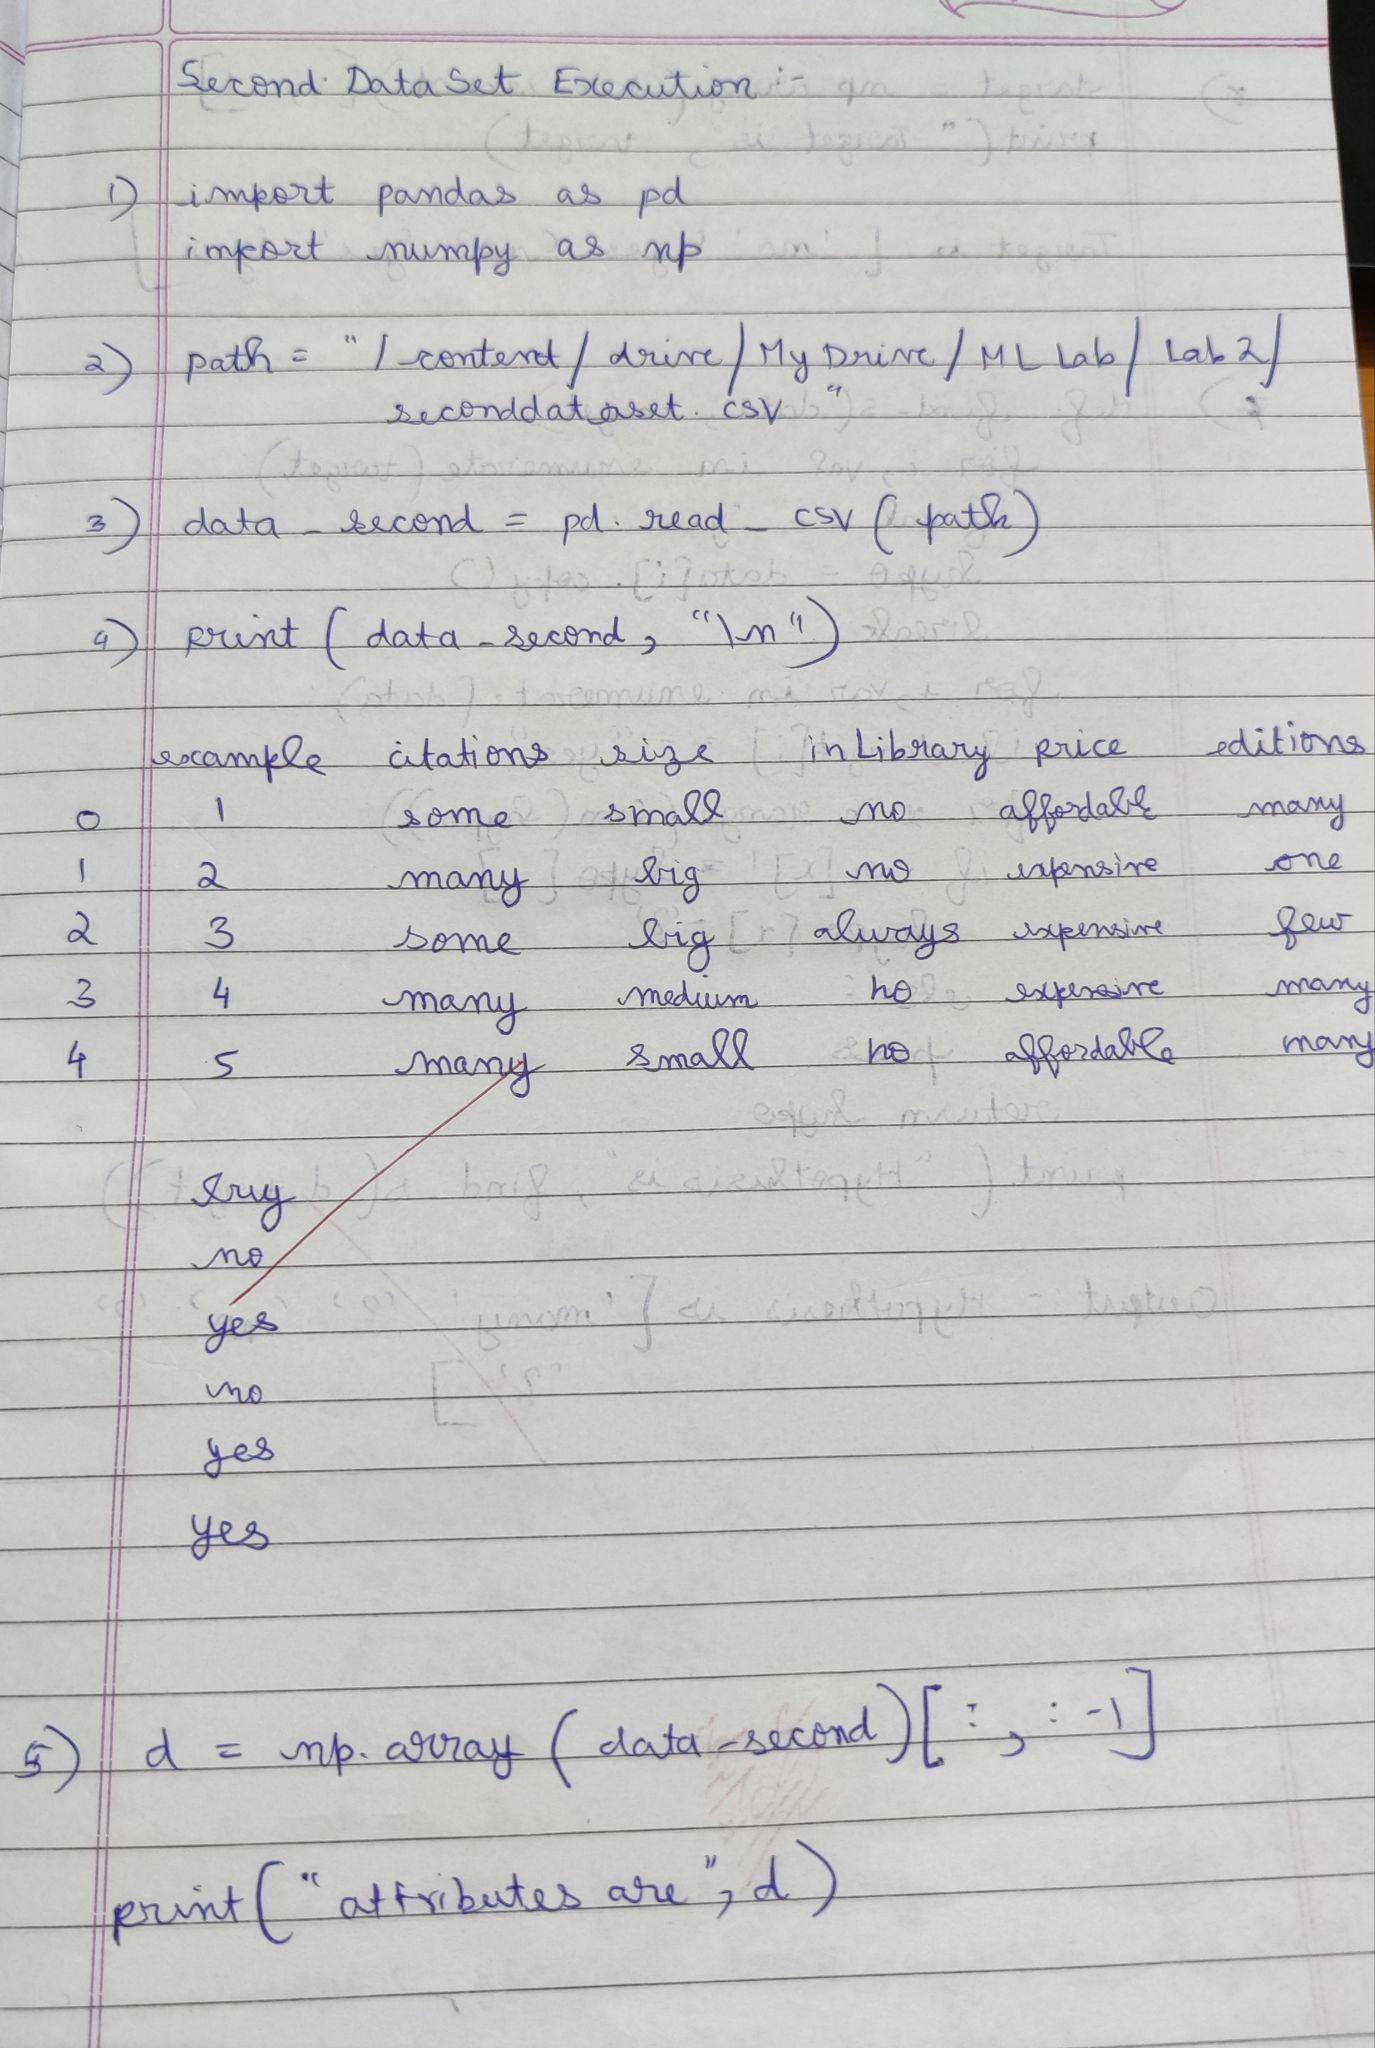 Second DataSet Execution :-
1) import pandas as pd
import numpy as np
2) path = "/content/drive/MyDrive/ML Lab/Lab2/
seconddataset.csv"
3) data_second = pd.read_csv(path)
4) print(data_second, "\n")
example citations size inLibrary price editions
0 1 some small no affordable many
1 2 many big no expensive one
2 3 some big always expensive few
3 4 many medium no expensive many
4 5 many small no affordable many
buy
no
yes
no
yes
yes
5) d = np.array(data_second)[:, :-1]
print("attributes are", d)